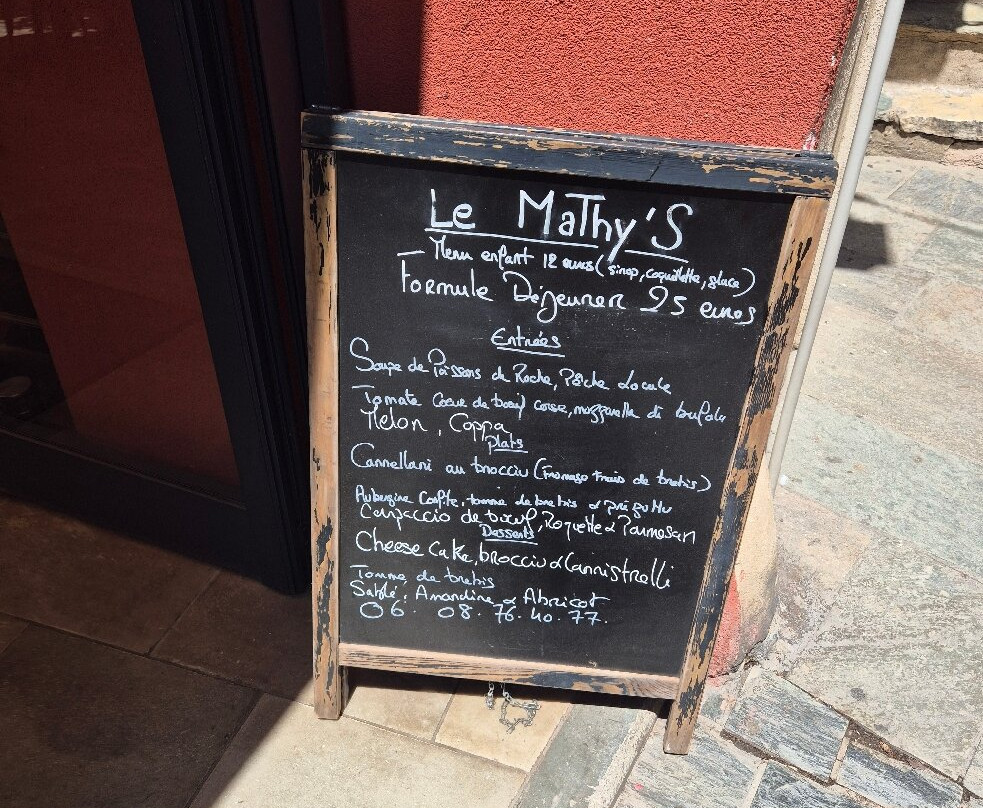 Le MaThy'S
Menu enfant 12 euros (sirop, coquillette, glace)
Formule Déjeuner 25 euros
Entrées
Soupe de Poissons de Roche, Pêche Locale
Tomate Coeur de boeuf corse, mozzarella di bufala
Melon, Coppa
Plats
Cannelloni au brocciu (Fromage Frais de brebis)
Aubergine Confite, tomme de brebis &
Carpaccio de boeuf, Roquette & Parmesan
Desserts
Cheese Cake, brocciu & Cannistrelli
Tomme de brebis
Sablé, Amandine & Abricot
06. 08. 76. 40. 77.